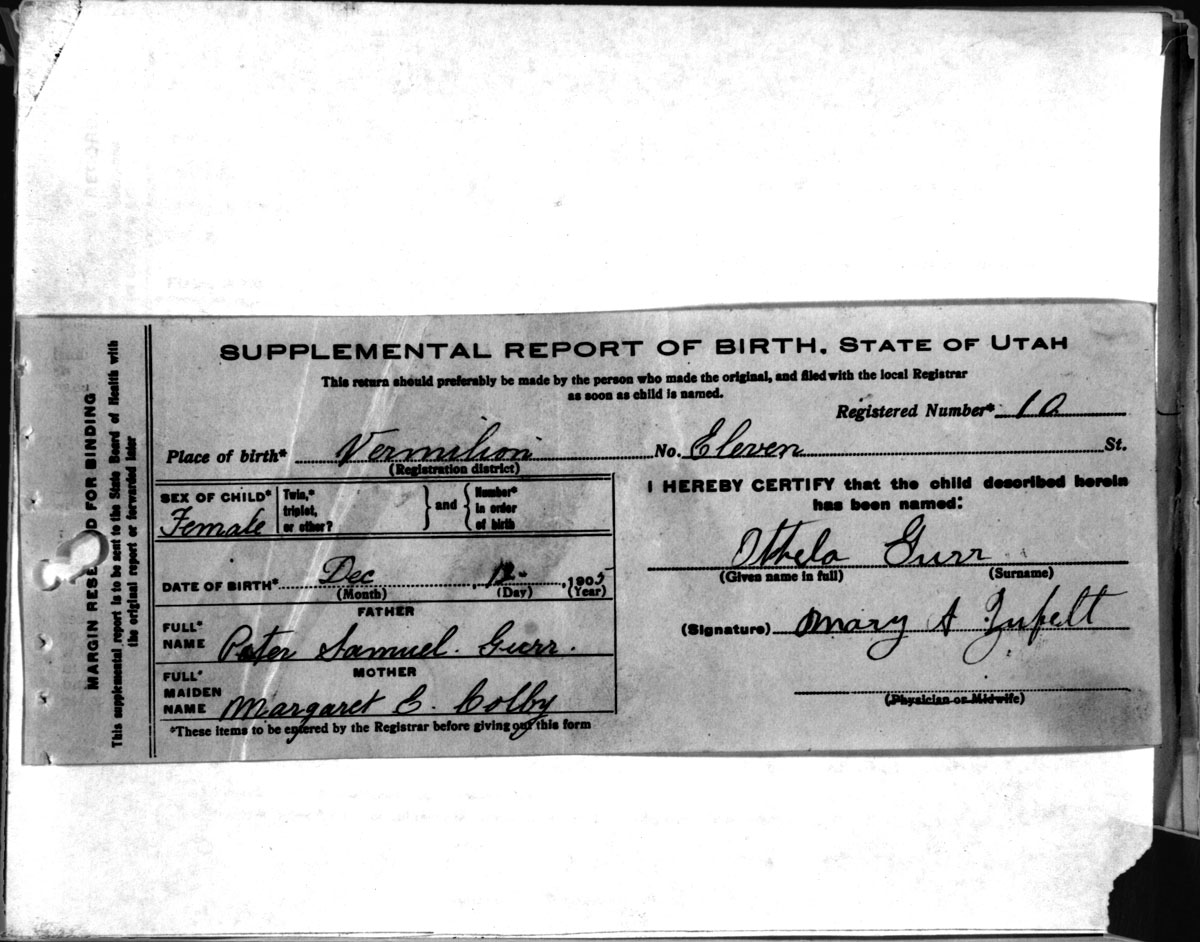 SUPPLEMENTAL REPORT OF BIRTH, STATE OF UTAH
This return should preferably be made by the person who made the original, and filed with the local Registrar
as soon as child is named.
Registered Number* 10
Place of birth* Vermilion No. Eleven St.
(Registration district)
SEX OF CHILD* Female
Twin,* triplet, or other? } and { Number* in order of birth
DATE OF BIRTH* Dec 12 1905
(Month) (Day) (Year)
FATHER
FULL* NAME Peter Samuel Gurr.
MOTHER
FULL* MAIDEN NAME Margaret E. Colby
*These items to be entered by the Registrar before giving out this form
I HEREBY CERTIFY that the child described herein
has been named:
Othela Gurr
(Given name in full) (Surname)
(Signature) Mary A Zufelt
(Physician or Midwife)
MARGIN RESERVED FOR BINDING
This supplemental report is to be sent to the State Board of Health with
the original report or forwarded later